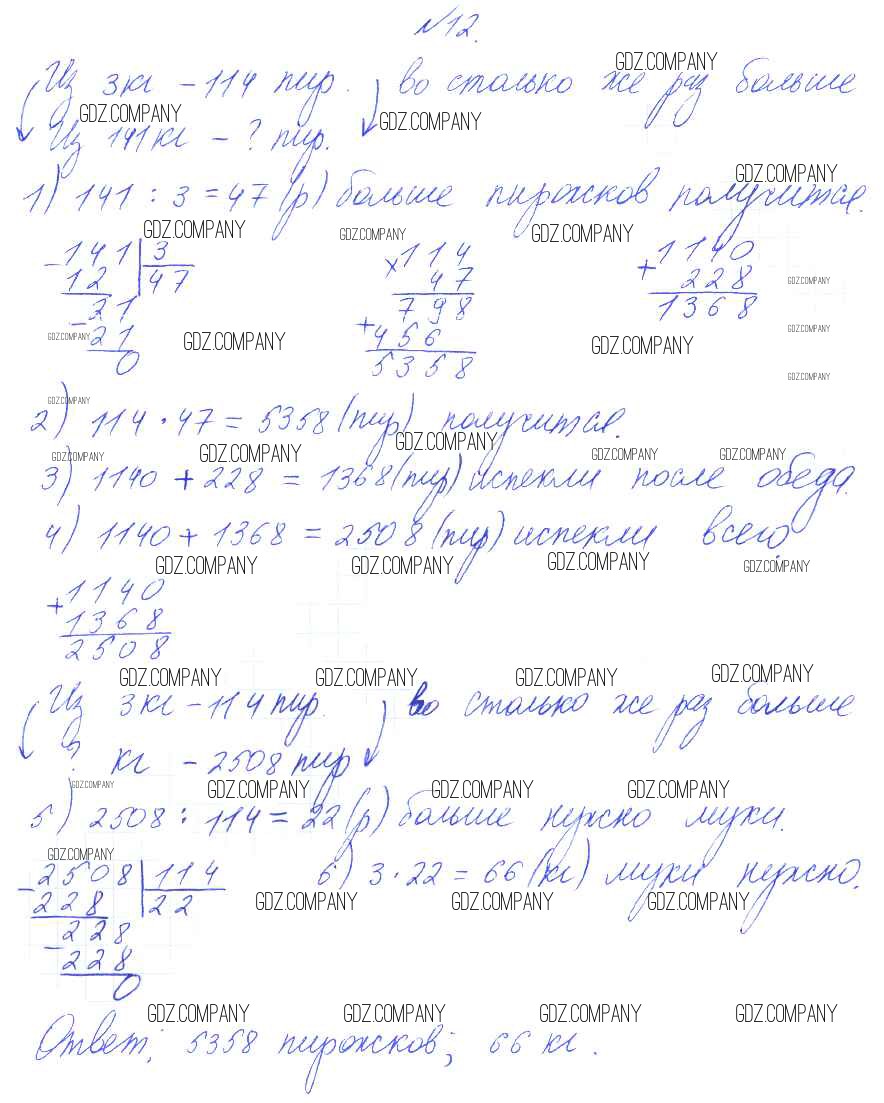 №12.
GDZ.COMPANY
Из 3кг – 114 пир. во столько же раз больше
GDZ.COMPANY GDZ.COMPANY
Из 141кг – ? пир.
GDZ.COMPANY
1) 141 : 3 = 47 (р) больше пирожков получится.
GDZ.COMPANY GDZ.COMPANY GDZ.COMPANY
– 141 | 3 × 114 + 1140
12 | 47 47 228 GDZ.COMPANY
– 21 798 1368
GDZ.COMPANY 21 GDZ.COMPANY + 456 GDZ.COMPANY GDZ.COMPANY
0 5358
GDZ.COMPANY
GDZ.COMPANY
2) 114 · 47 = 5358 (пир) получится.
GDZ.COMPANY GDZ.COMPANY GDZ.COMPANY GDZ.COMPANY GDZ.COMPANY
3) 1140 + 228 = 1368 (пир) испекли после обеда.
4) 1140 + 1368 = 2508 (пир) испекли всего.
GDZ.COMPANY GDZ.COMPANY GDZ.COMPANY GDZ.COMPANY
+ 1140
1368
2508
GDZ.COMPANY GDZ.COMPANY GDZ.COMPANY GDZ.COMPANY
Из 3кг – 114 пир. во столько же раз больше
? кг – 2508 пир
GDZ.COMPANY GDZ.COMPANY GDZ.COMPANY GDZ.COMPANY
5) 2508 : 114 = 22 (р) больше нужно муки.
GDZ.COMPANY
– 2508 | 114 6) 3 · 22 = 66 (кг) муки нужно.
228 | 22 GDZ.COMPANY GDZ.COMPANY GDZ.COMPANY
– 228
228
0
GDZ.COMPANY GDZ.COMPANY GDZ.COMPANY GDZ.COMPANY
Ответ: 5358 пирожков; 66 кг.